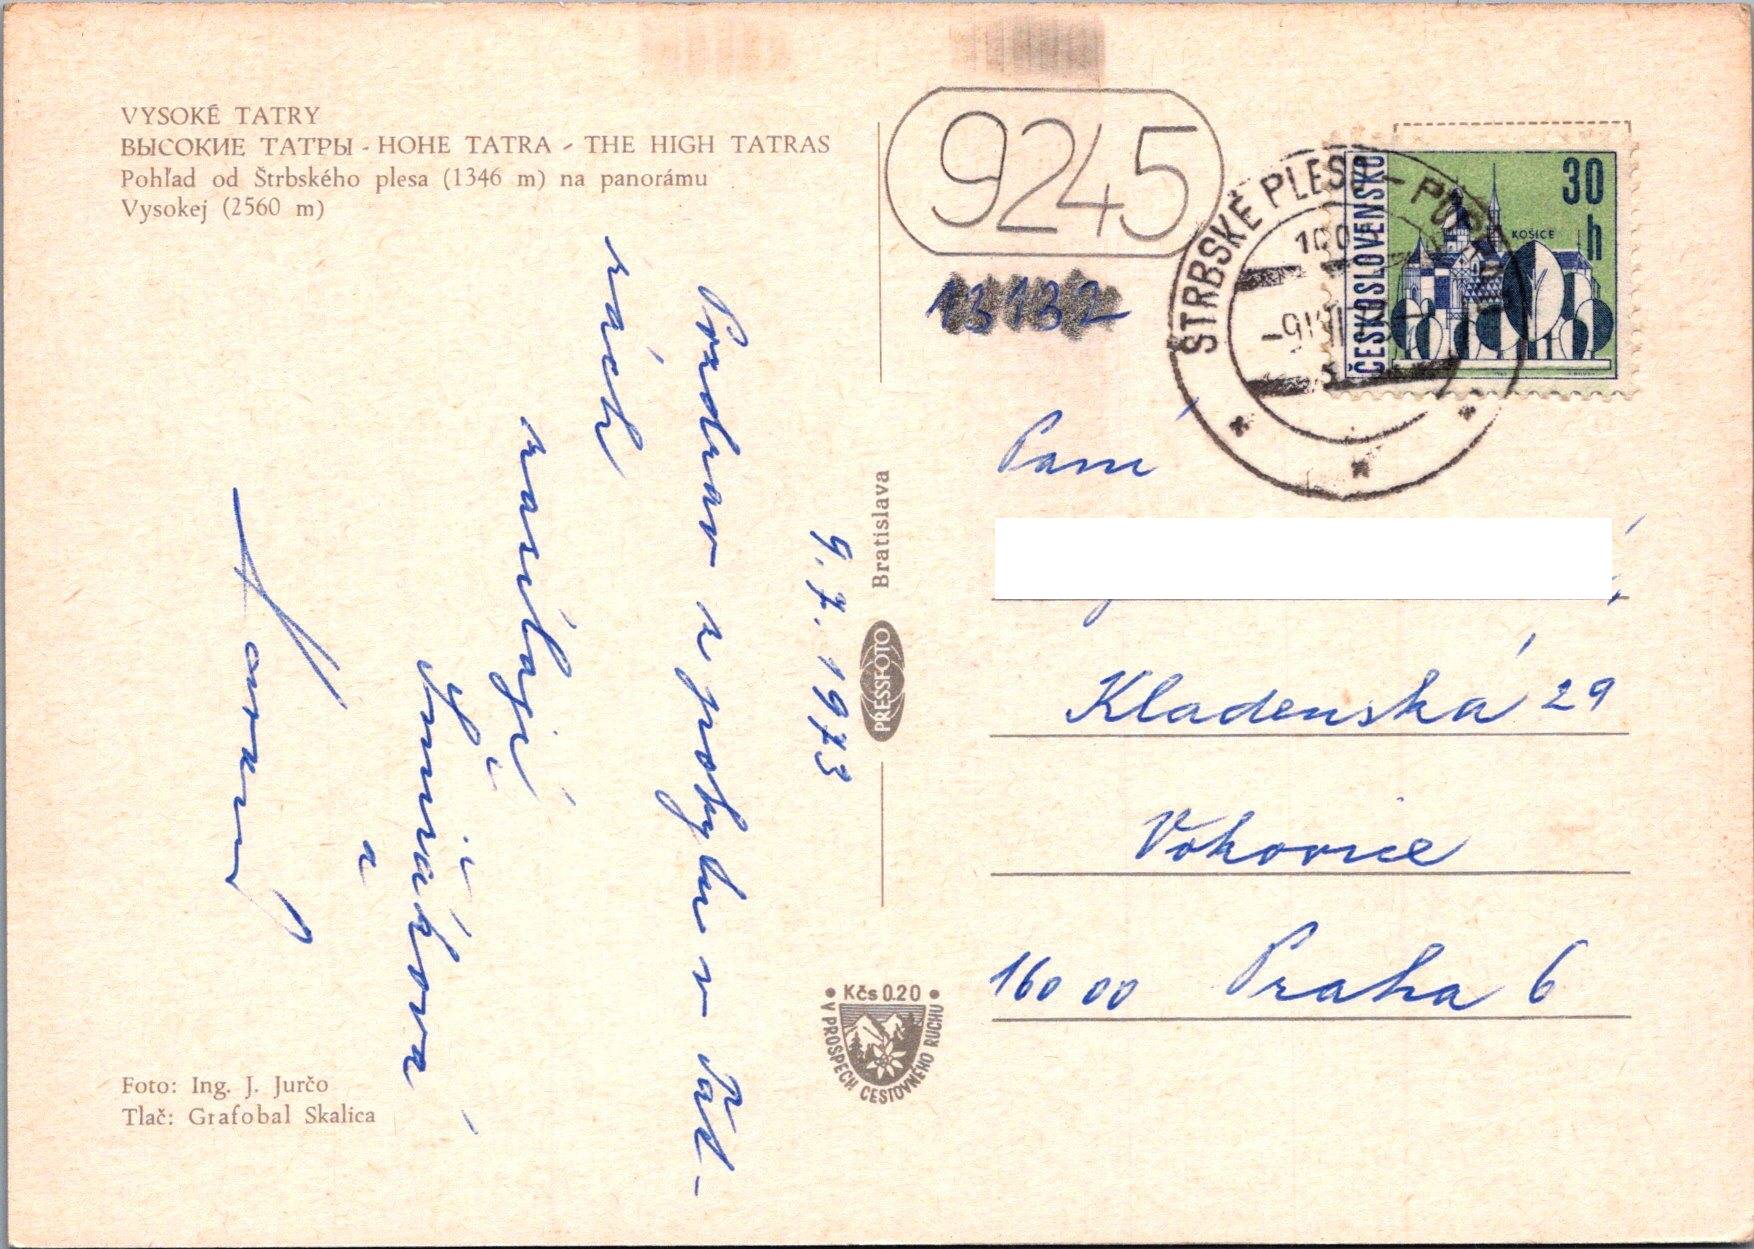 VYSOKÉ TATRY
ВЫСОКИЕ ТАТРЫ - HOHE TATRA - THE HIGH TATRAS
Pohľad od Štrbského plesa (1346 m) na panorámu
Vysokej (2560 m)
9245
13132
ČESKOSLOVENSKO
30
h
KOŠICE
ŠTRBSKÉ PLESO
9. 7. 1973
Pozdrav z pobytu v Tat-
rách
zasílají
Šimiáková
a
Paní
Kladenská 29
Vokovice
160 00 Praha 6
PRESSFOTO Bratislava
Kčs 0.20
V PROSPECH CESTOVNÉHO RUCHU
Foto: Ing. J. Jurčo
Tlač: Grafobal Skalica